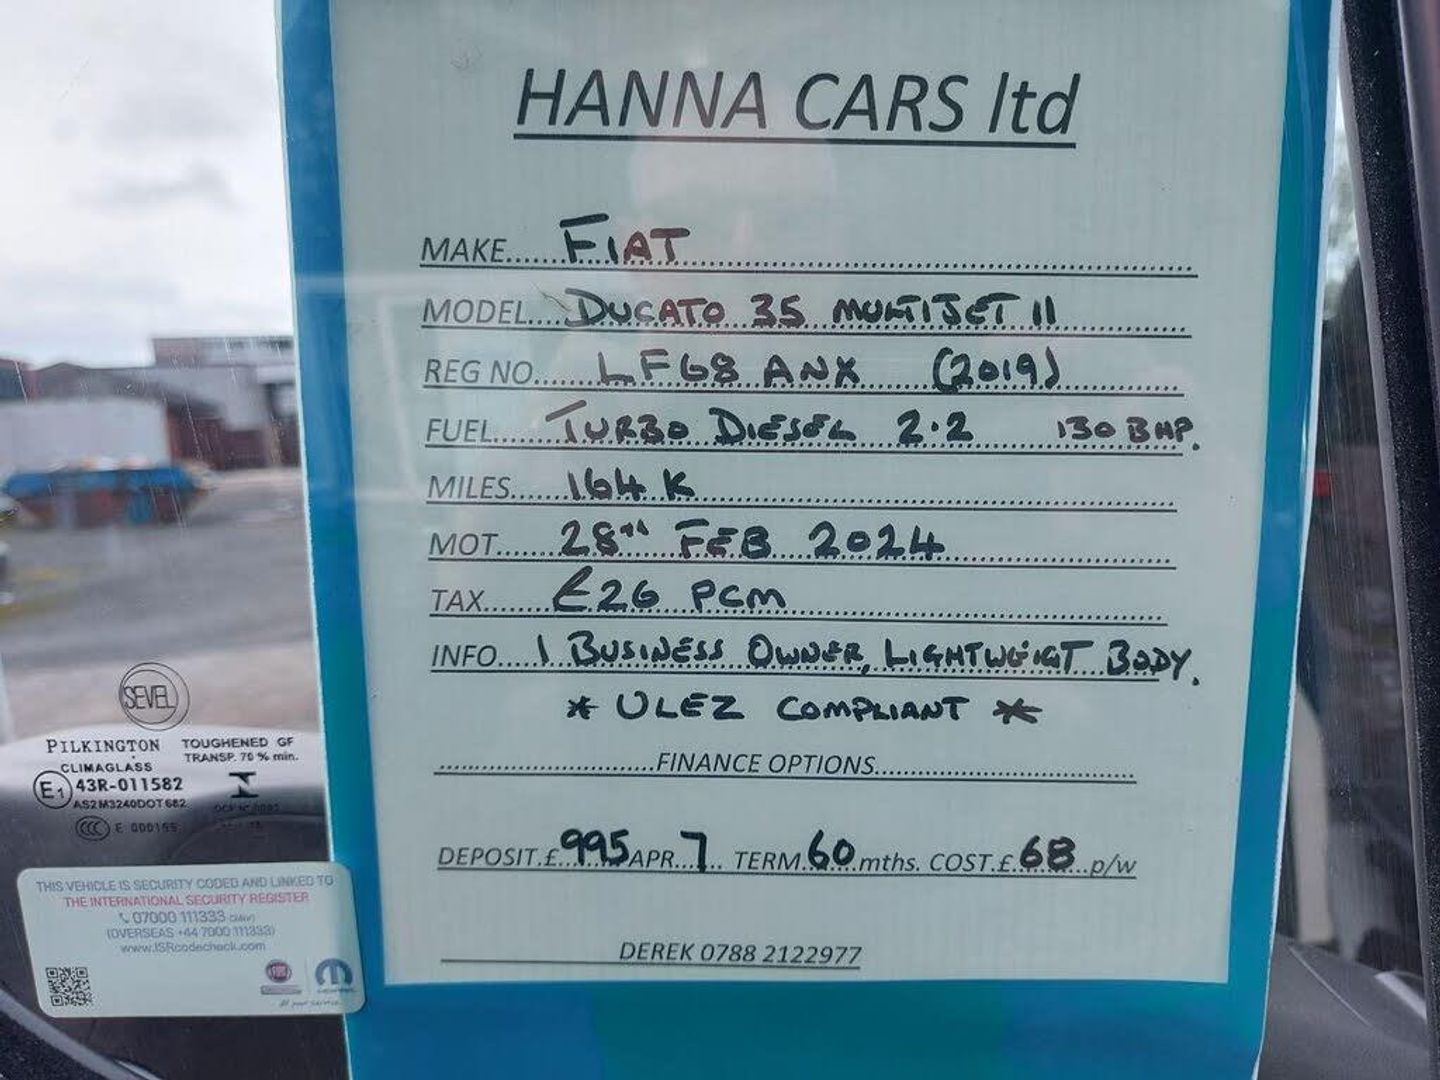 HANNA CARS ltd
MAKE......FIAT
MODEL....DUCATO 35 MULTIJET II
REG NO.....LF68 ANX (2019)
FUEL.....TURBO DIESEL 2.2 130 BHP.
MILES.....164 K
MOT......28TH FEB 2024
TAX......£26 PCM
INFO....1 BUSINESS OWNER, LIGHTWEIGT BODY.
* ULEZ COMPLIANT *
FINANCE OPTIONS
DEPOSIT.£995 APR...7... TERM.60.mths. COST.£.68...p/w
DEREK 0788 2122977
SEVEL
PILKINGTON TOUGHENED GF
TRANSP. 70 % min.
CLIMAGLASS
E1 43R-011582
AS2 M3240DOT 682
CCC E 000199
THIS VEHICLE IS SECURITY CODED AND LINKED TO
THE INTERNATIONAL SECURITY REGISTER
07000 111333 (24hr)
(OVERSEAS +44 7000 111333)
www.ISRcodecheck.com
FIAT